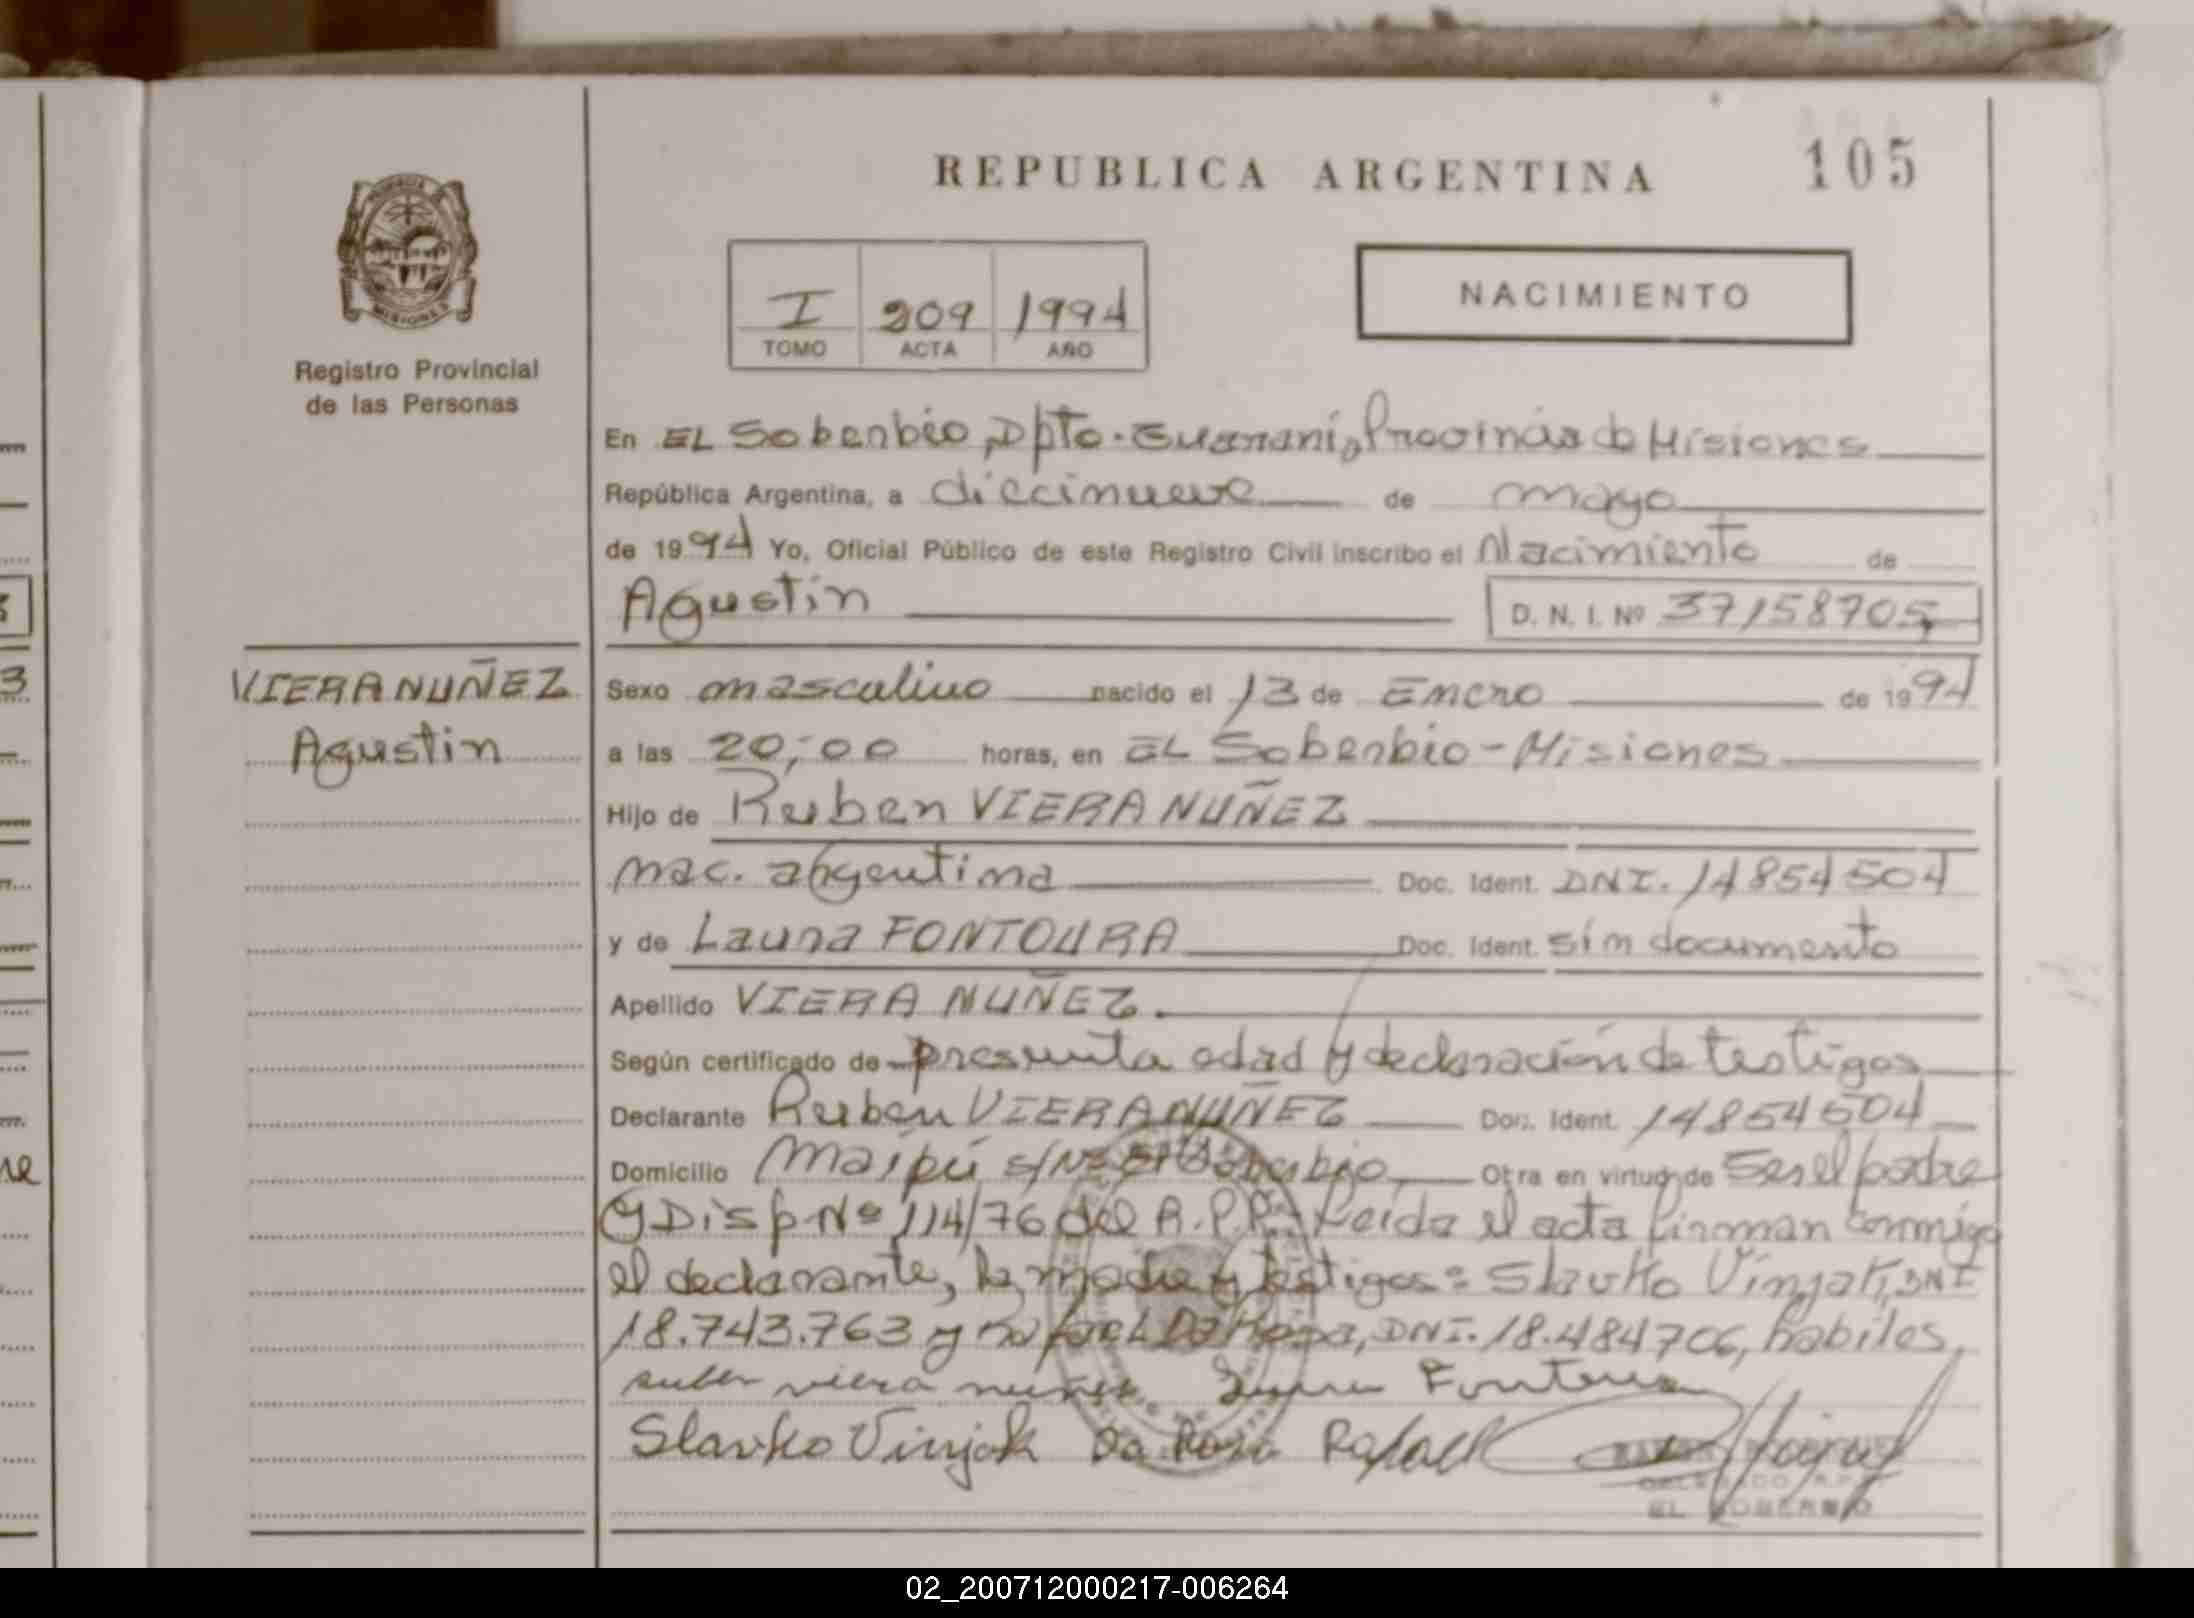 REPUBLICA ARGENTINA
105
MISIONES
Registro Provincial
de las Personas
I 209 1994
TOMO ACTA AÑO
NACIMIENTO
En EL Soberbio, Dpto. Guaraní, Provincia de Misiones
República Argentina, a diecinueve de mayo
de 1994 Yo, Oficial Público de este Registro Civil inscribo el Nacimiento de
Agustin D. N. I. Nº 37158705
VIERA NUÑEZ
Agustin
Sexo masculino nacido el 13 de Enero de 1994
a las 20,00 horas, en EL Soberbio - Misiones
Hijo de Ruben VIERA NUÑEZ
nac. argentina Doc. Ident. DNI. 14854504
y de Laura FONTOURA Doc. Ident. sin documento
Apellido VIERA NUÑEZ.
Según certificado de presunta edad y declaración de testigos
Declarante Ruben VIERA NUÑEZ Doc. Ident. 14854504
Domicilio Maipú s/Nº El Soberbio, Otra en virtud de Ser el padre
y Disp. Nº 114/76 del R.P.P. Leída el acta firman conmigo
el declarante, la madre y testigos: Slavko Vinjak, DNI
18.743.763 y Rafael Da Rosa, DNI. 18.484706, habiles,
ruben viera nuñez Laura Fontoura
Slavko Vinjak Da Rosa Rafael
EL SOBERBIO
02_200712000217-006264